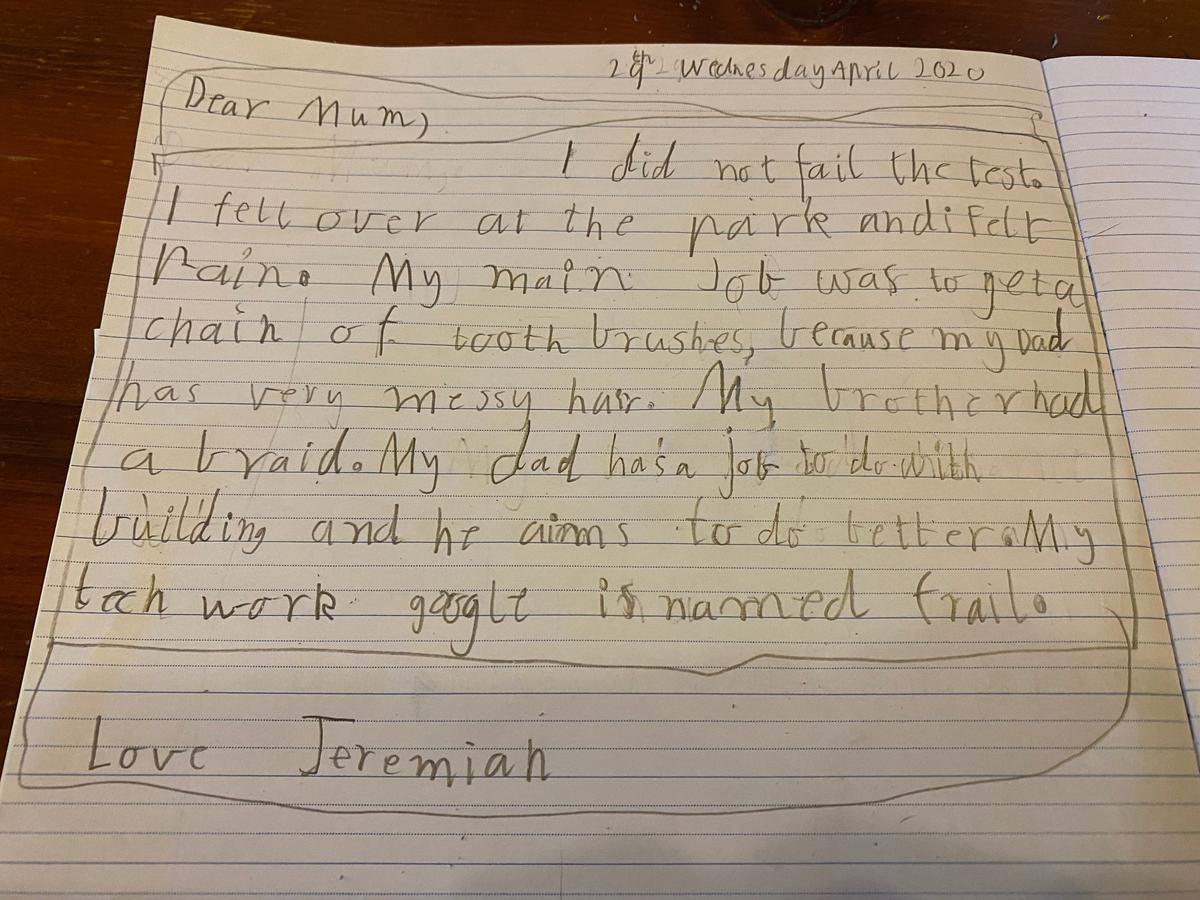 29th Wednesday April 2020
Dear Mum,
I did not fail the test.
I fell over at the park and i felt
Pain. My main Job was to get a
chain of tooth brushes, because my Dad
has very messy hair. My brother had
a braid. My dad has a job to do with
building and he aims to do better. My
tech work google is named frail.
Love Jeremiah